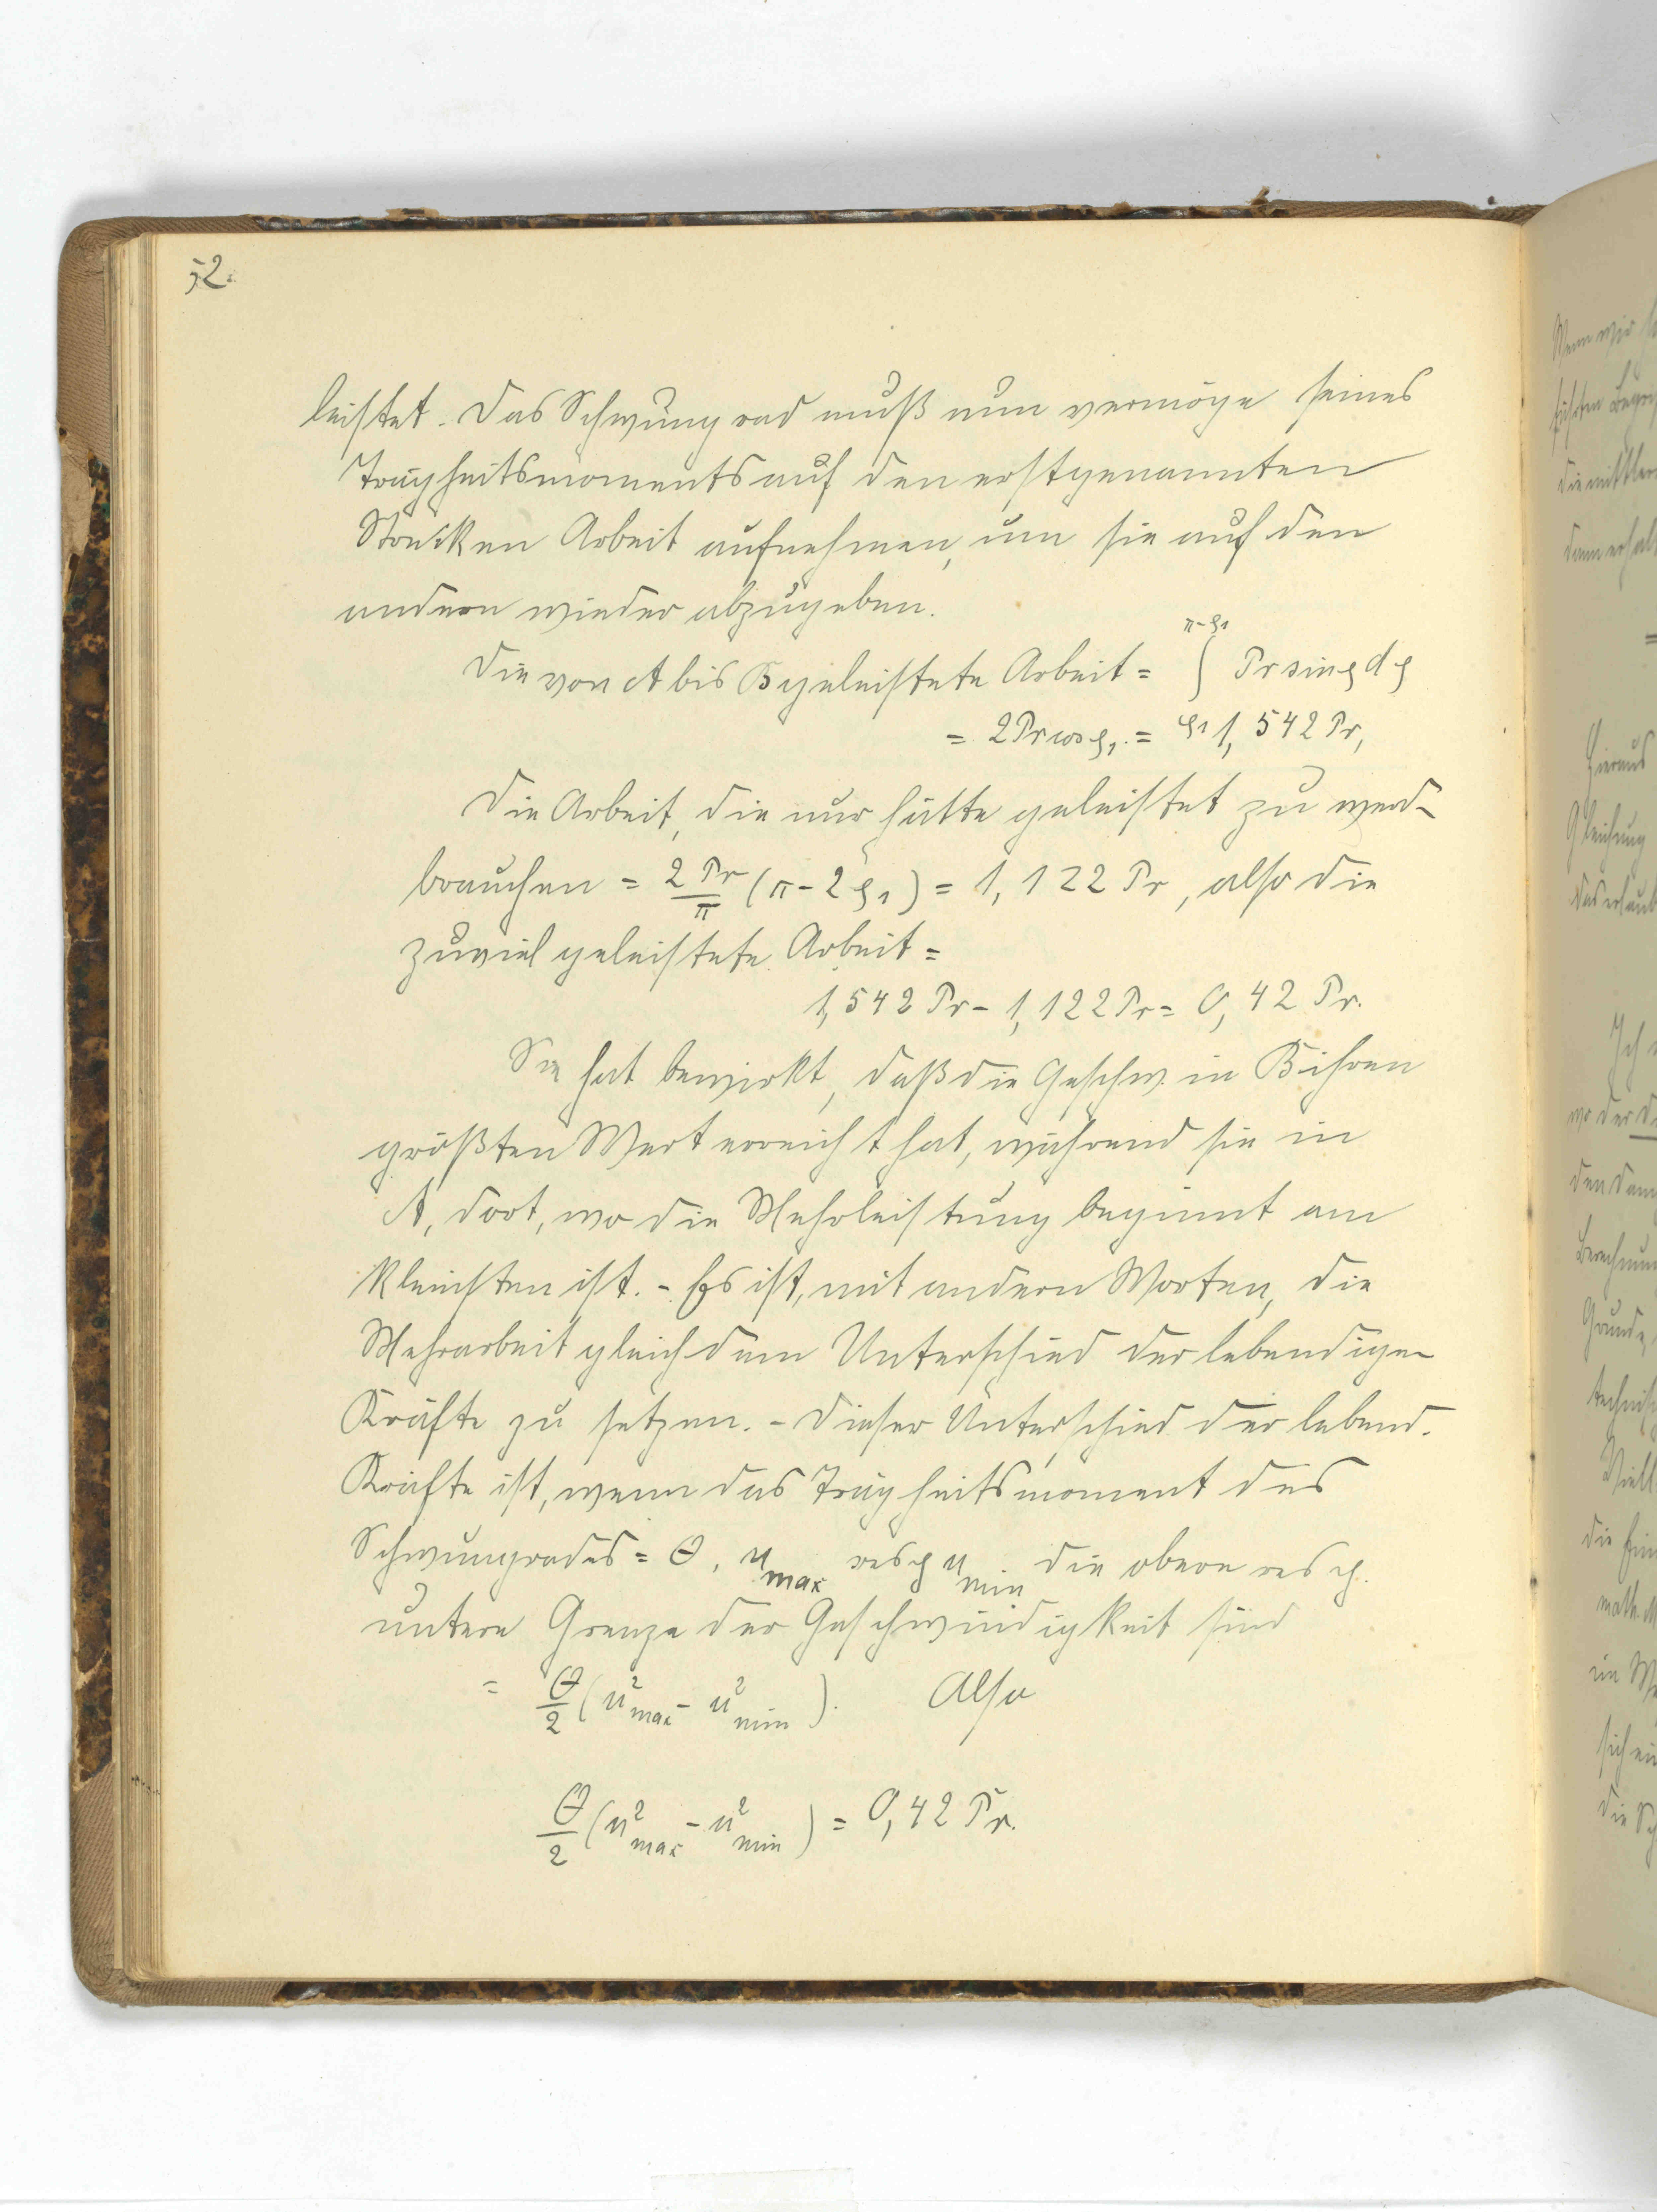 52.
leistet. Das Schwungrad muß nun vermöge seines
Trägheitsmoments auf den erstgenannten
Strecken Arbeit aufnehmen, um sie auf den
andern wieder abzugeben.
Die von A bis B geleistete Arbeit = ∫_{φ₁}^{π-φ₁} Pr sin φ dφ
= 2 Pr cos φ₁. = 1,542 Pr,
Die Arbeit, die nur hätte geleistet zu werd-
brauchen = 2 Pr/π (π - 2 φ₁) = 1,122 Pr, also die
zuviel geleistete Arbeit =
1,542 Pr - 1,122 Pr = 0,42 Pr.
Sie hat bewirkt, daß die Geschw. in B ihren
größten Wert erreicht hat, während sie in
A, dort, wo die Mehrleistung beginnt am
kleinsten ist. - Es ist, mit andern Worten, die
Mehrarbeit gleich dem Unterschied der lebendigen
Kräfte zu setzen. - Dieser Unterschied der lebend.
Kräfte ist, wenn das Trägheitsmoment des
Schwungrades = Θ, u_max resp u_min die obere resp.
untere Grenze der Geschwindigkeit sind
= Θ/2 (u²_max - u²_min). Also
Θ/2 (u²_max - u²_min) = 0,42 Pr.
Wenn wir
die mittlere
Hieraus
Gleichung
Ich
wo der
den
Grunde,
math.